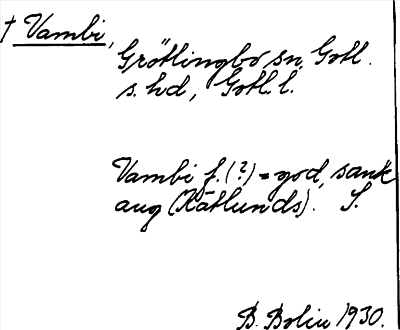 † Vambi,
Grötlingbo sn, Gotl.
s. hd, Gotl. l.
Vambi f. (?) = god, sank
äng (Kätlunds). S.
B. Bolin 1930.